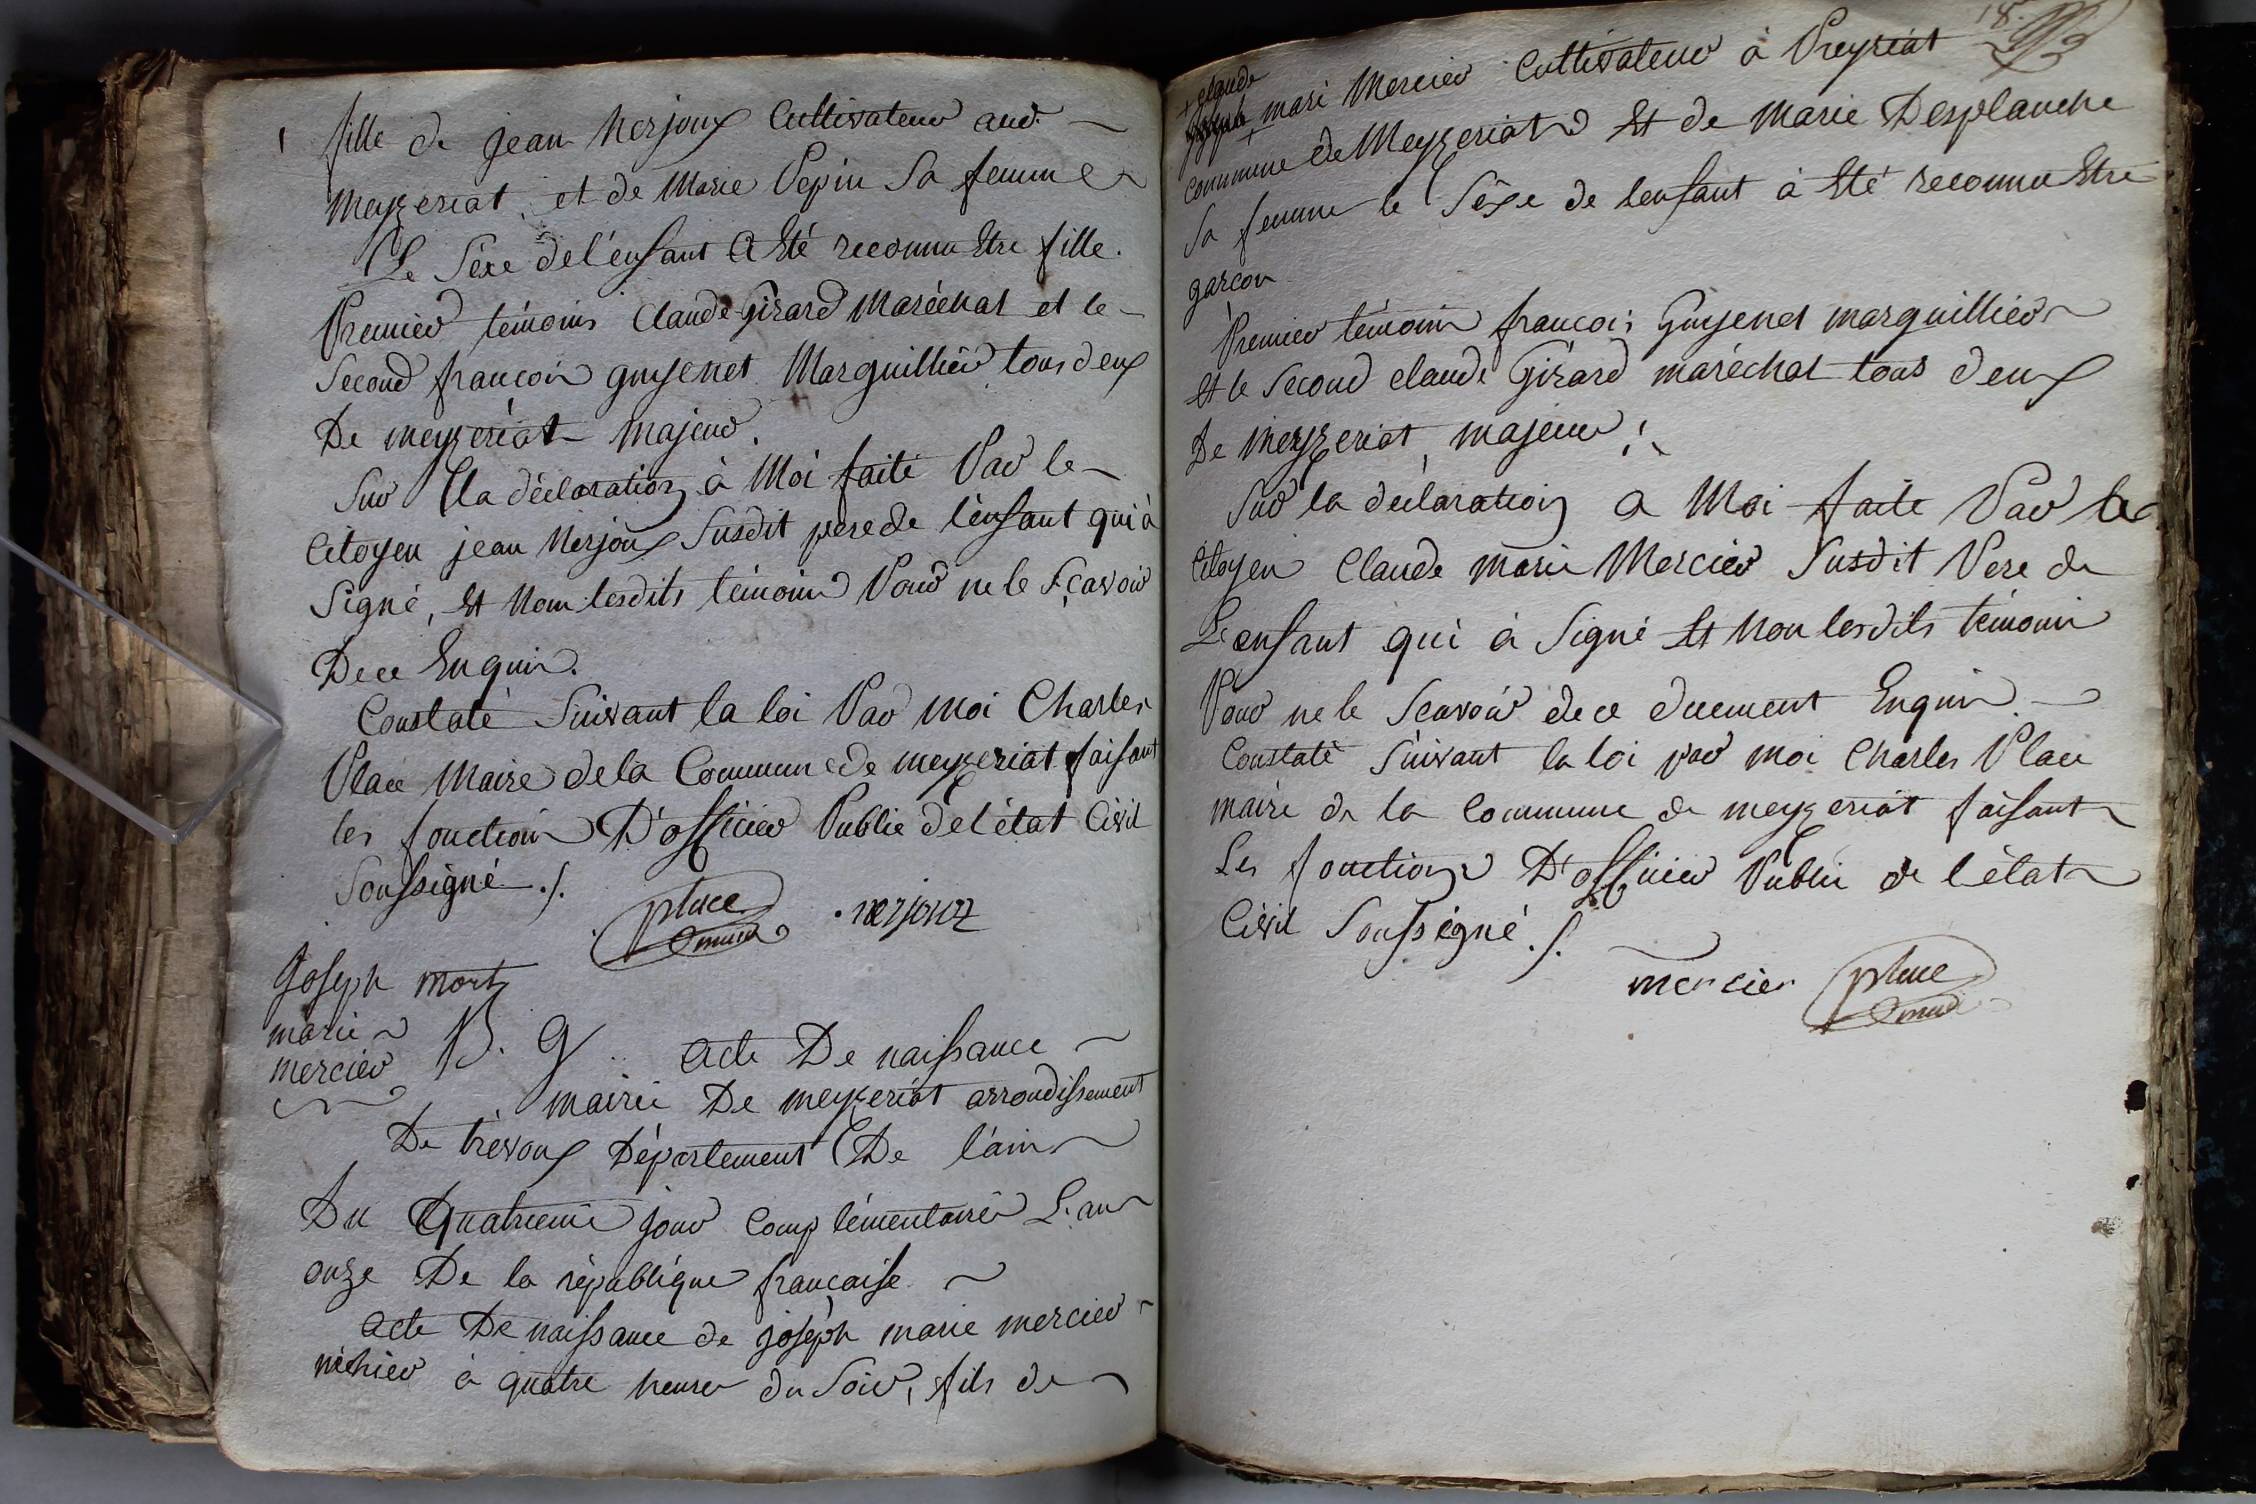 fille de jean Nerjoux Cultivateur aud.
Meyzeriat, et de Marie Pepin Sa femme
Le Séxe de l'enfant a Eté reconnu Etre fille.
Premier témoins Claude Girard Maréchal et le
Second françois guyenet Marguillier tous deux
De meyzériat majeur.
Sur la déclaration à Moi faite Par le
Citoyen jean Nerjoux Susdit pere de l'enfant qui à
Signé, Et Non lesdits témoins Pour ne le Sçavoir
De ce Enquis.
Constaté Suivant la loi Par moi Charles
Place Maire de la Commune de meyzeriat faisant
les fonctions D'officier Public de l'état Civil
Soussigné ./.
place maire . nerjoux
Joseph mort
marie
mercier
B. 9 .. Acte De naissance
mairie De meyzériat arrondissement
De trévoux Département De l'ain
Du Quatrieme jour Complémentaire L'an
onze De la république française
Acte De naissance de joséph marie mercier
né hier à quatre heures du Soir, fils de
18.
+ claude
joseph + marie Mercier Cultivateur à Preyriat
commune de Meyzeriat Et de Marie Desplanche
Sa femme le Séxe de lenfant à Eté reconnu Etre
garçon
Premier témoin françois Guyenet marguillier
Et le Second claude Girard maréchal tous deux
De Meyzeriat, majeur ;
Sur la déclaration a Moi faite Par le
Citoyen Claude marie Mercier Susdit Pere de
L'enfant qui à Signé Et Non lesdits témoin
Pour ne le Scavoir de ce duement Enquis
Constaté Suivant la loi par moi Charles Place
maire de la Commune de meyzeriat faisant
Les fonctions D'officier Public de l'état
Civil Soussigné ./.
mercier place maire